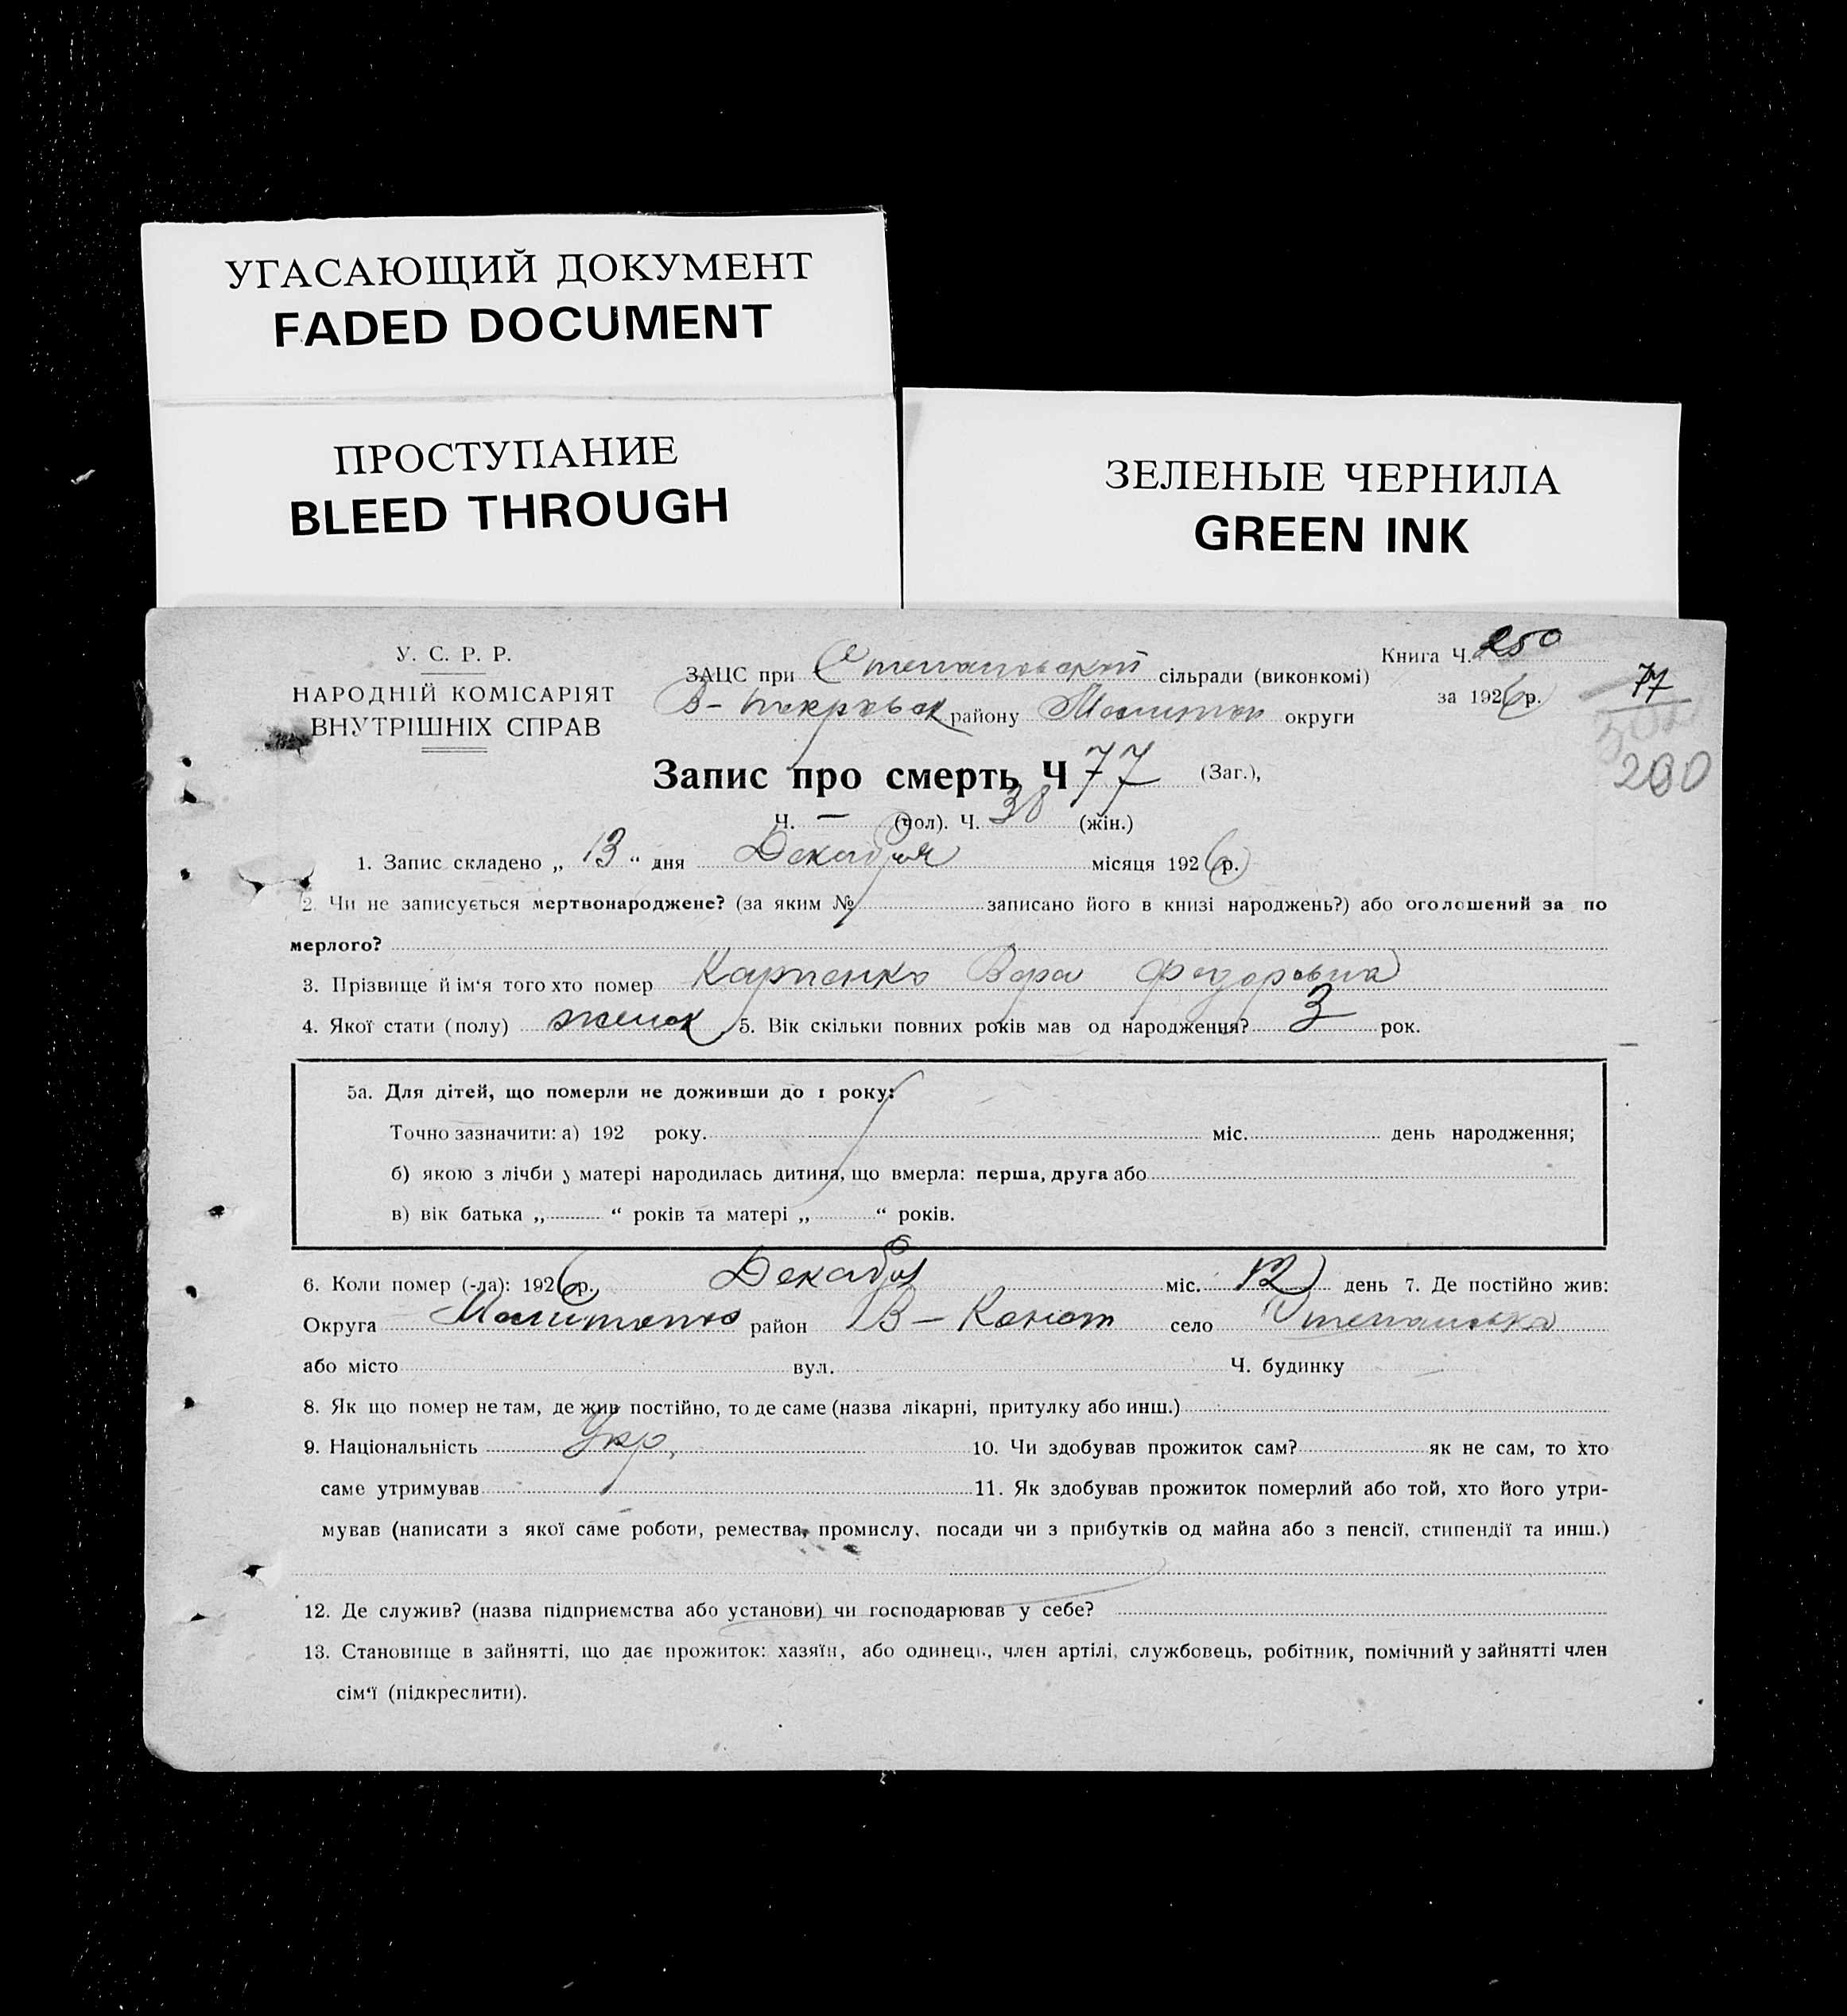 УГАСАЮЩИЙ ДОКУМЕНТ
FADED DOCUMENT
ПРОСТУПАНИЕ
BLEED THROUGH
ЗЕЛЕНЫЕ ЧЕРНИЛА
GREEN INK
У. С. Р. Р.
НАРОДНІЙ КОМІСАРІЯТ
ВНУТРІШНІХ СПРАВ
ЗАЦС при Степановской сільради (виконкомі)
району округи
Книга Ч. 250
за 1926 р.
77
200
Запис про смерть Ч 77 (Заг.),
Ч. — (чол). Ч. 38 (жін.)
1. Запис складено „ 13 “ дня Декабря місяця 1926 р.
2. Чи не записується мертвонароджене? (за яким № записано його в книзі народжень?) або оголошений за по
мерлого?
3. Прізвище й ім‘я того хто помер Карпенко Вера Федоровна
4. Якої стати (полу) женск 5. Вік скільки повних років мав од народження? 3 рок.
5а. Для дітей, що померли не доживши до 1 року:
Точно зазначити: а) 192 року. міс. день народження;
б) якою з лічби у матері народилась дитина, що вмерла: перша, друга або
в) вік батька „ “ років та матері „ “ років.
6. Коли помер (-ла): 1926 р. Декабря міс. 12 день 7. Де постійно жив:
Округа район село
або місто вул. Ч. будинку
8. Як що помер не там, де жив постійно, то де саме (назва лікарні, притулку або инш.)
9. Національність Укр. 10. Чи здобував прожиток сам? як не сам, то хто
саме утримував 11. Як здобував прожиток померлий або той, хто його утри-
мував (написати з якої саме роботи, ремества, промислу, посади чи з прибутків од майна або з пенсії, стипендії та инш.)
12. Де служив? (назва підприємства або установи) чи господарював у себе?
13. Становище в зайнятті, що дає прожиток: хазяїн, або одинець, член артілі, службовець, робітник, помічний у зайнятті член
сім‘ї (підкреслити).